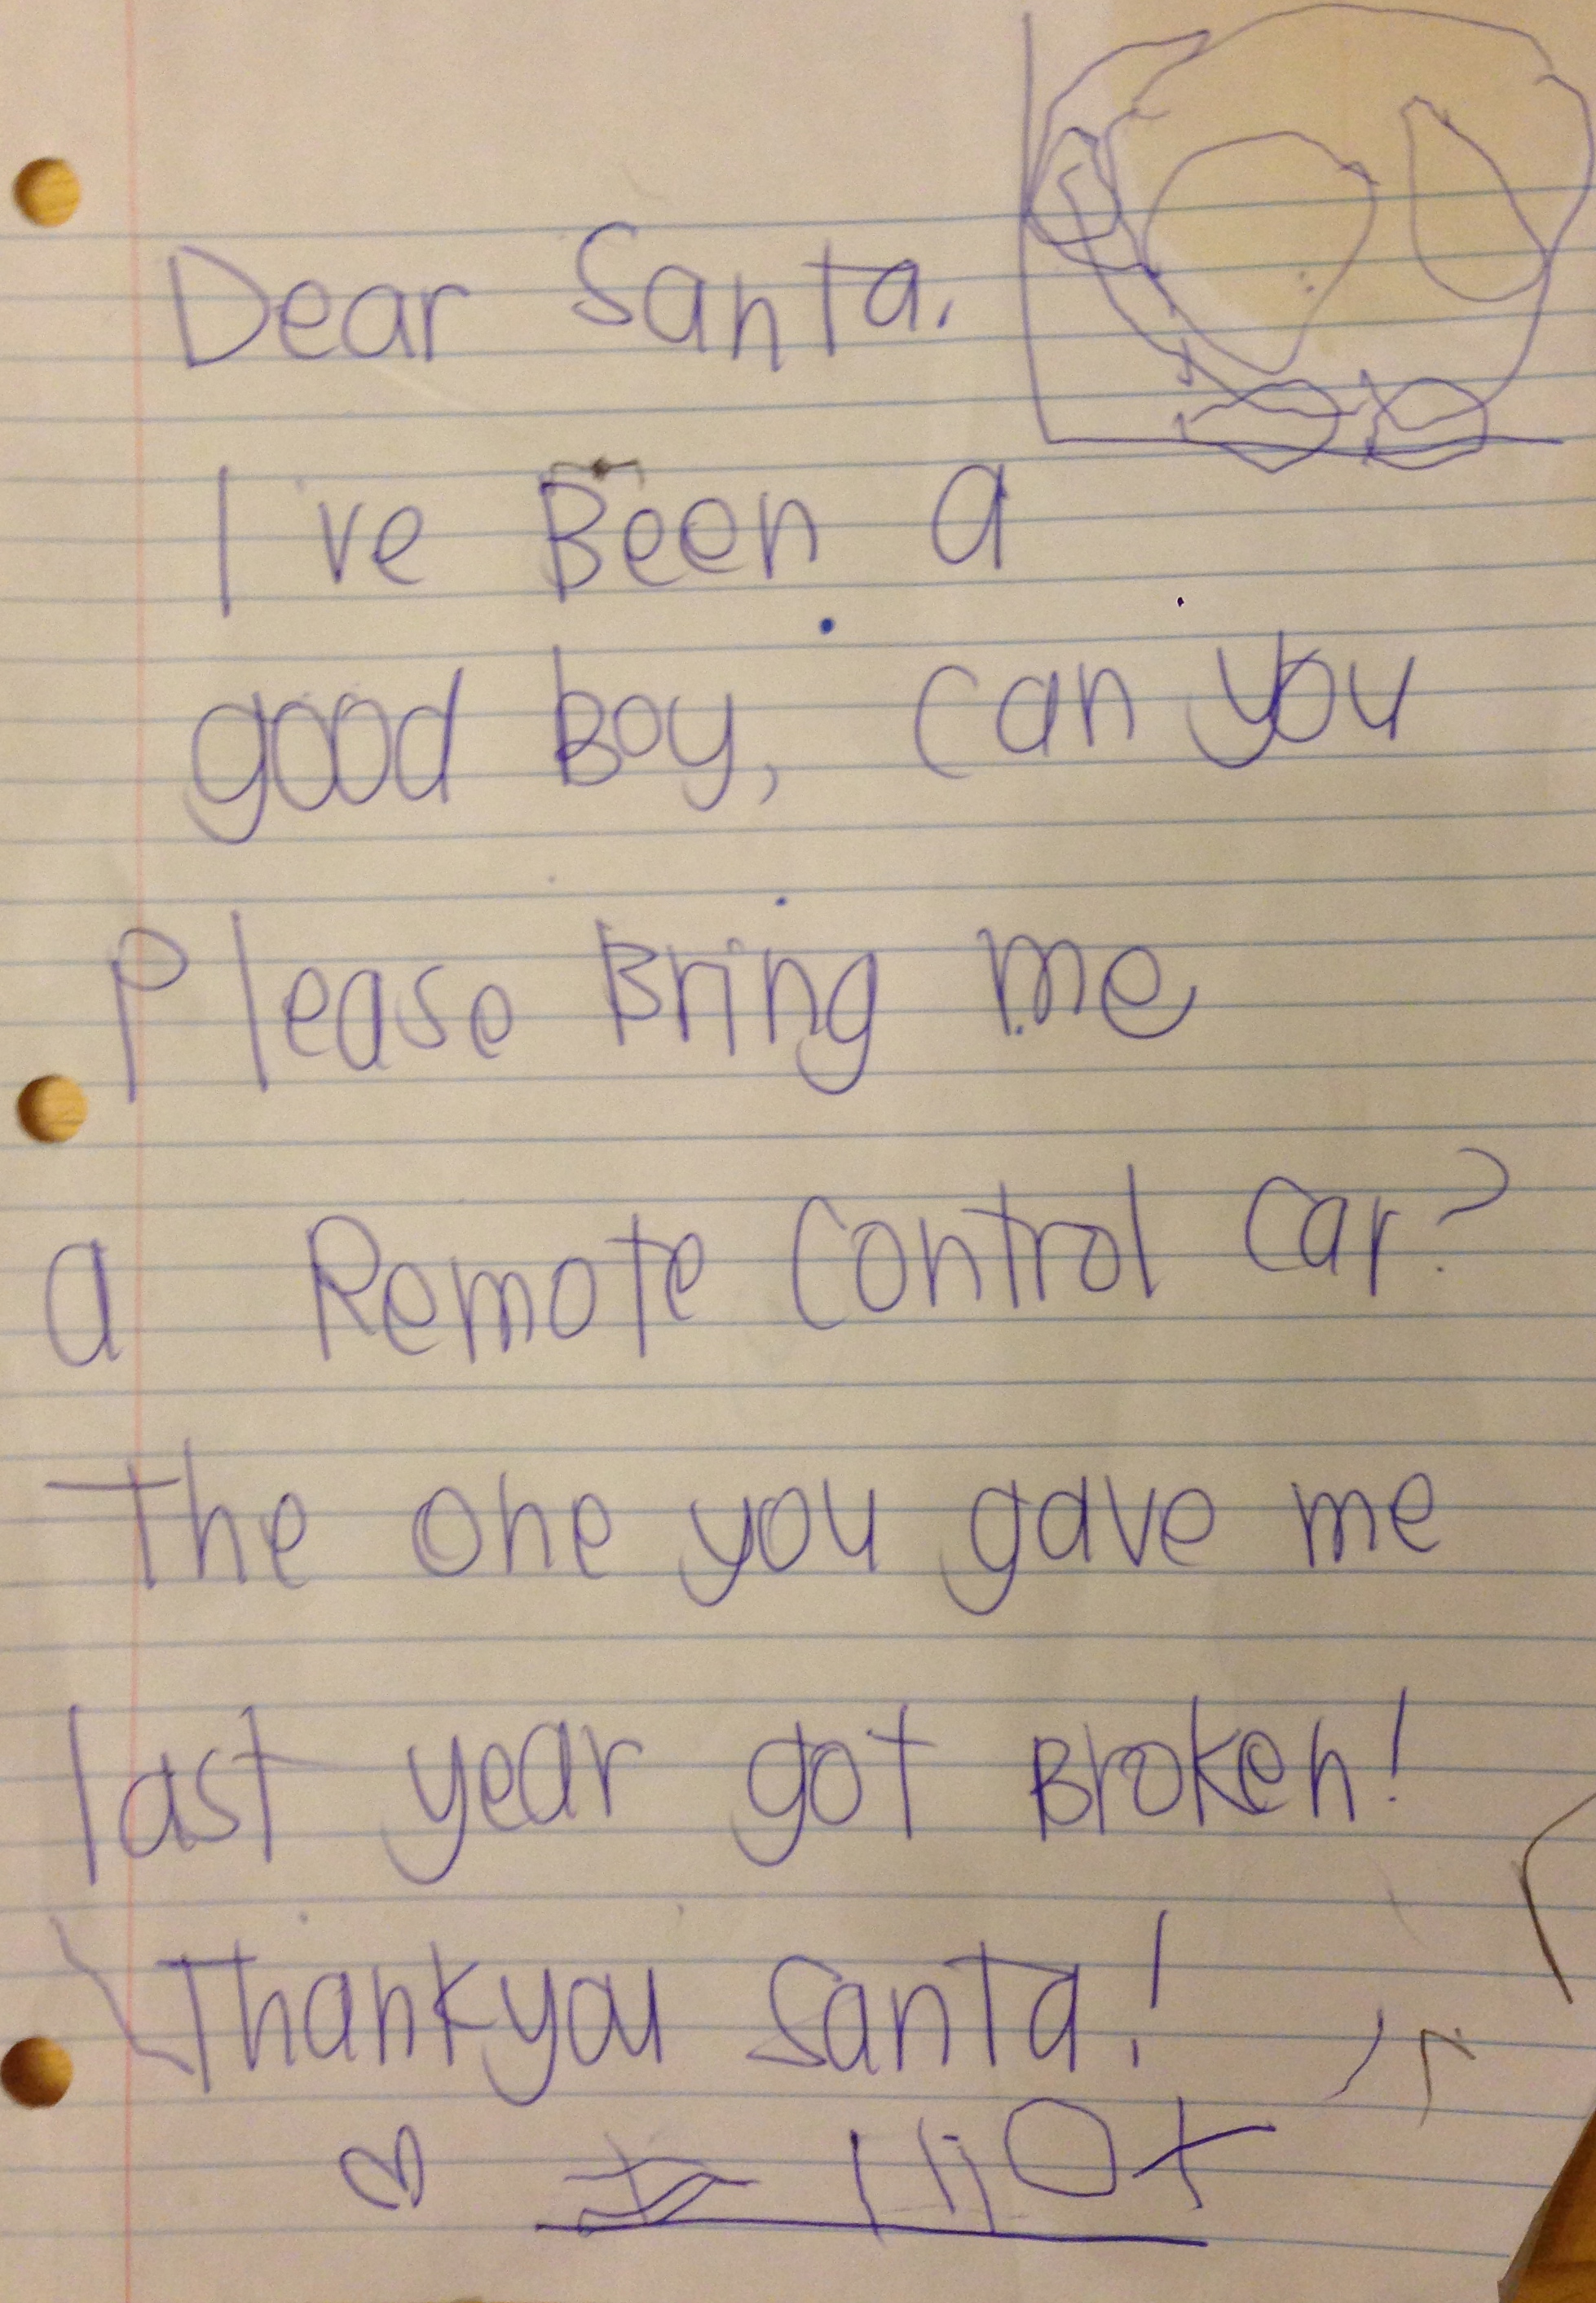 Dear Santa.
I've Been a
good Boy, can you
Please Bring me
a Remote Control Car?
The one you gave me
last year got Broken!
Thankyou Santa!